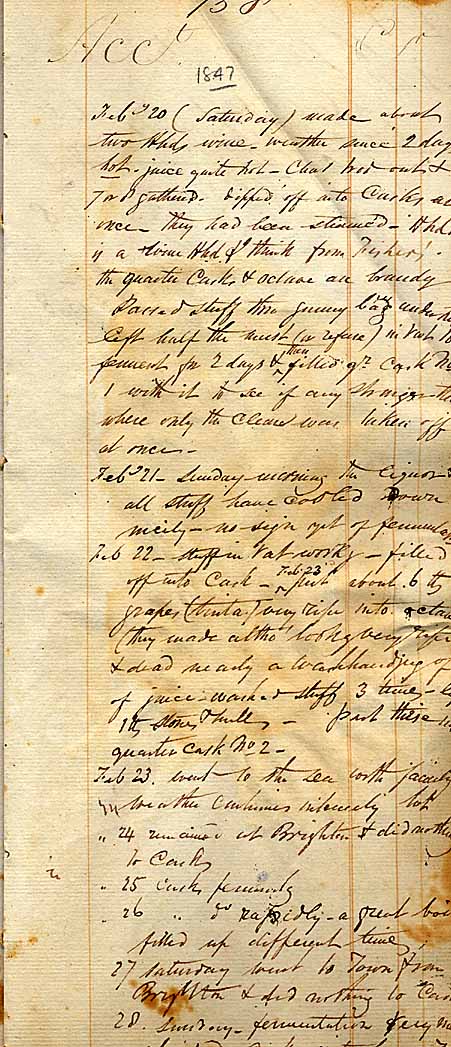 Acct Cr
1847
Feby 20 (Saturday) made about
two Hhds wine - weather since 2 day
hot - juice quite hot - Chas trod out &
Tord gathered. dipped off into Casks at
once - they had been steamed - Hhd
is a Lime Hhd I think from Fisher
the quarter Casks & octave are brandy
Passed stuff thro gunny bag under
left half the must (or refuse) in Vat to
ferment for 2 days & then filled qr Cask No
1 with it to see if any stronger tha
where only the clear was taken off
at once -
Feby 21 - Sunday morning the liquor &
all stuff have cooled down
nicely - no sign yet of fermenta
Feb 22 - stuff in Vat working - filled
off into Cask - Feb 23d put about 6 lb
grapes (tinta) very ripe into octav
(they made altho' looking very ripe
& dead nearly a washhanding of
of juice - washed stuff 3 times -
lb stones & hulls - put these in
quarter Cask No 2 -
Feb 23. went to the sea with family
weather continues intensely hot
" 24 remained at Brighton & did nothing
to Casks
" 25 Casks fermenting
" 26 " do rapidly - a great boi
filled up different times
27 Saturday went to Town from
Brighton & did nothing to Cas
28. Sunday - fermentation very